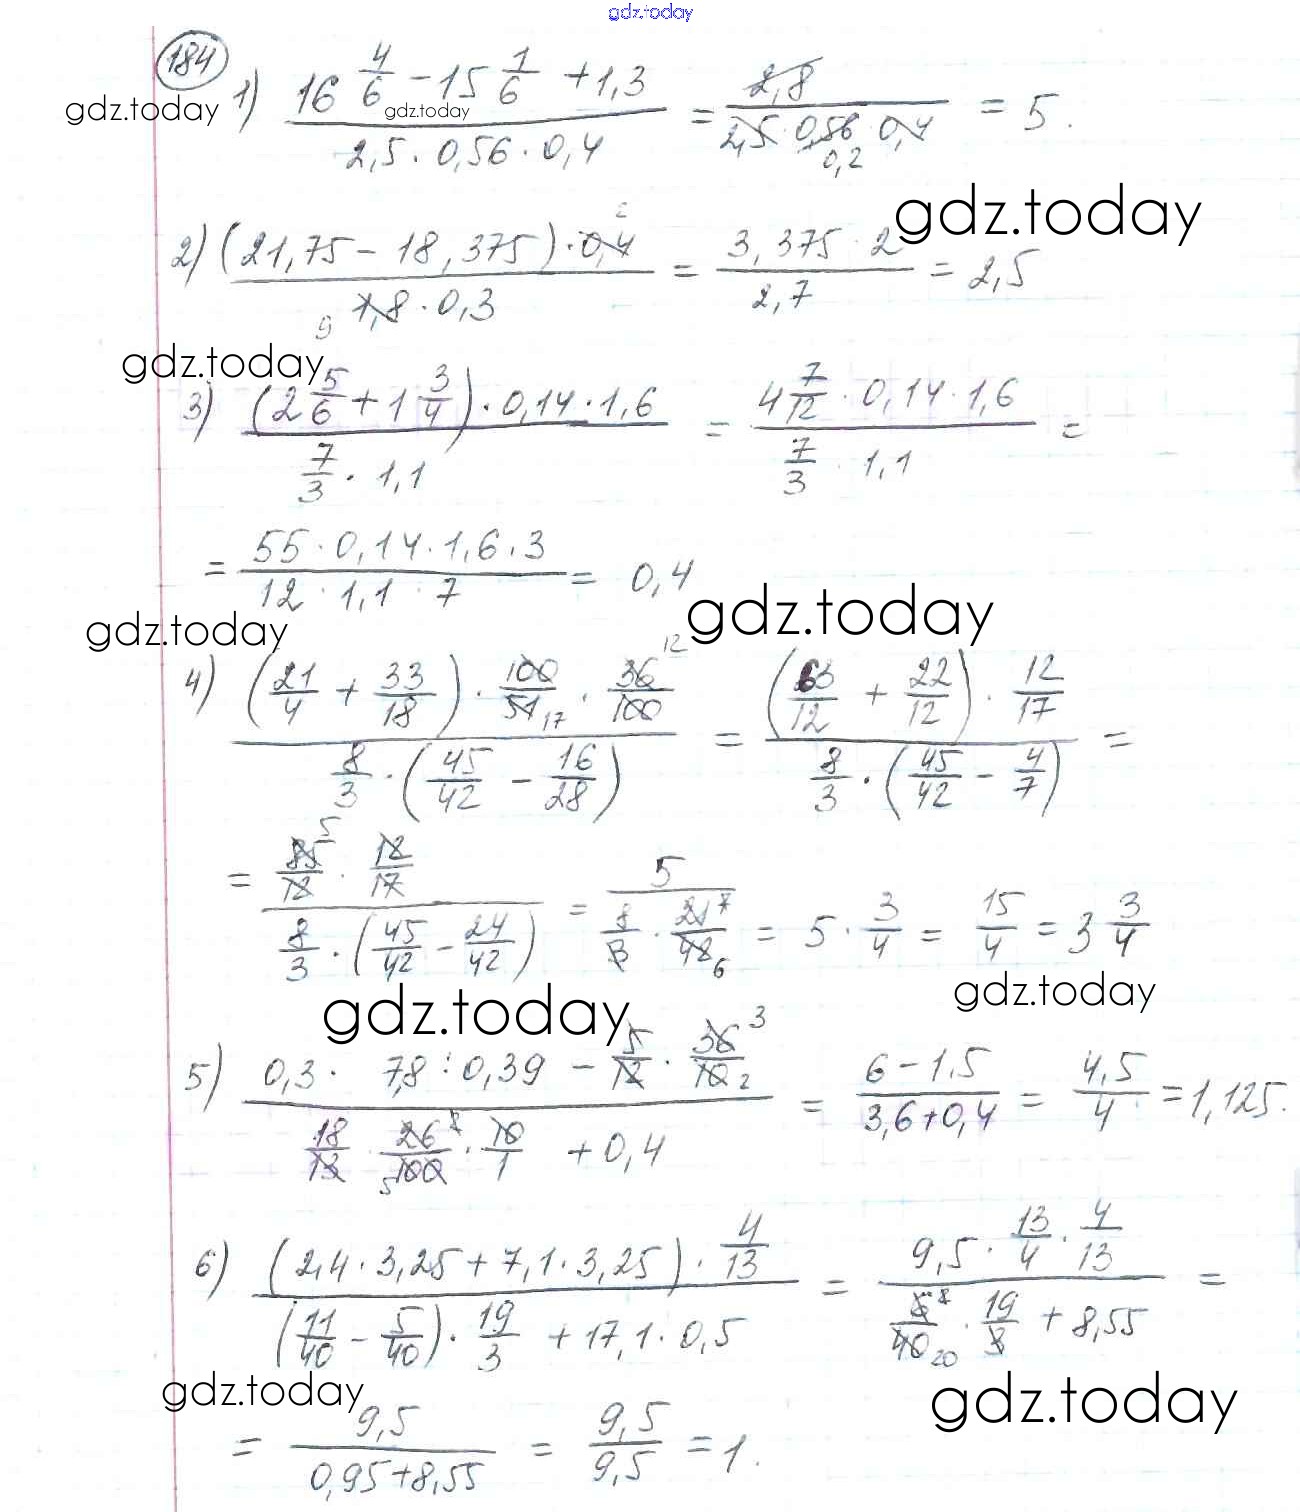 gdz.today
184
1) (16 4/6 - 15 1/6 + 1,3) / (2,5 · 0,56 · 0,4) = 2,8 / (2,5 · 0,56 · 0,4) = 5.
0,2
gdz.today
gdz.today
gdz.today
2) ((21,75 - 18,375) · 0,4) / (1,8 · 0,3) = (3,375 · 2) / 2,7 = 2,5
2
9
gdz.today
3) ((2 5/6 + 1 3/4) · 0,14 · 1,6) / (7/3 · 1,1) = (4 7/12 · 0,14 · 1,6) / (7/3 · 1,1) =
= (55 · 0,14 · 1,6 · 3) / (12 · 1,1 · 7) = 0,4
gdz.today
gdz.today
4) ((21/4 + 33/18) · 100/51 · 36/100) / (8/3 · (45/42 - 16/28)) = ((63/12 + 22/12) · 12/17) / (8/3 · (45/42 - 4/7)) =
12
17
= (85/12 · 12/17) / (8/3 · (45/42 - 24/42)) = 5 / (8/3 · 21/42) = 5 · 3/4 = 15/4 = 3 3/4
5
7
6
gdz.today
gdz.today
5) (0,3 · 7,8 : 0,39 - 5/12 · 36/10) / (18/13 · 26/100 · 10/1 + 0,4) = (6 - 1,5) / (3,6 + 0,4) = 4,5/4 = 1,125.
3
2
2
5
6) ((2,4 · 3,25 + 7,1 · 3,25) · 4/13) / ((11/40 - 5/40) · 19/3 + 17,1 · 0,5) = (9,5 · 13/4 · 4/13) / (6/40 · 19/3 + 8,55) =
20
gdz.today
gdz.today
= 9,5 / (0,95 + 8,55) = 9,5/9,5 = 1.